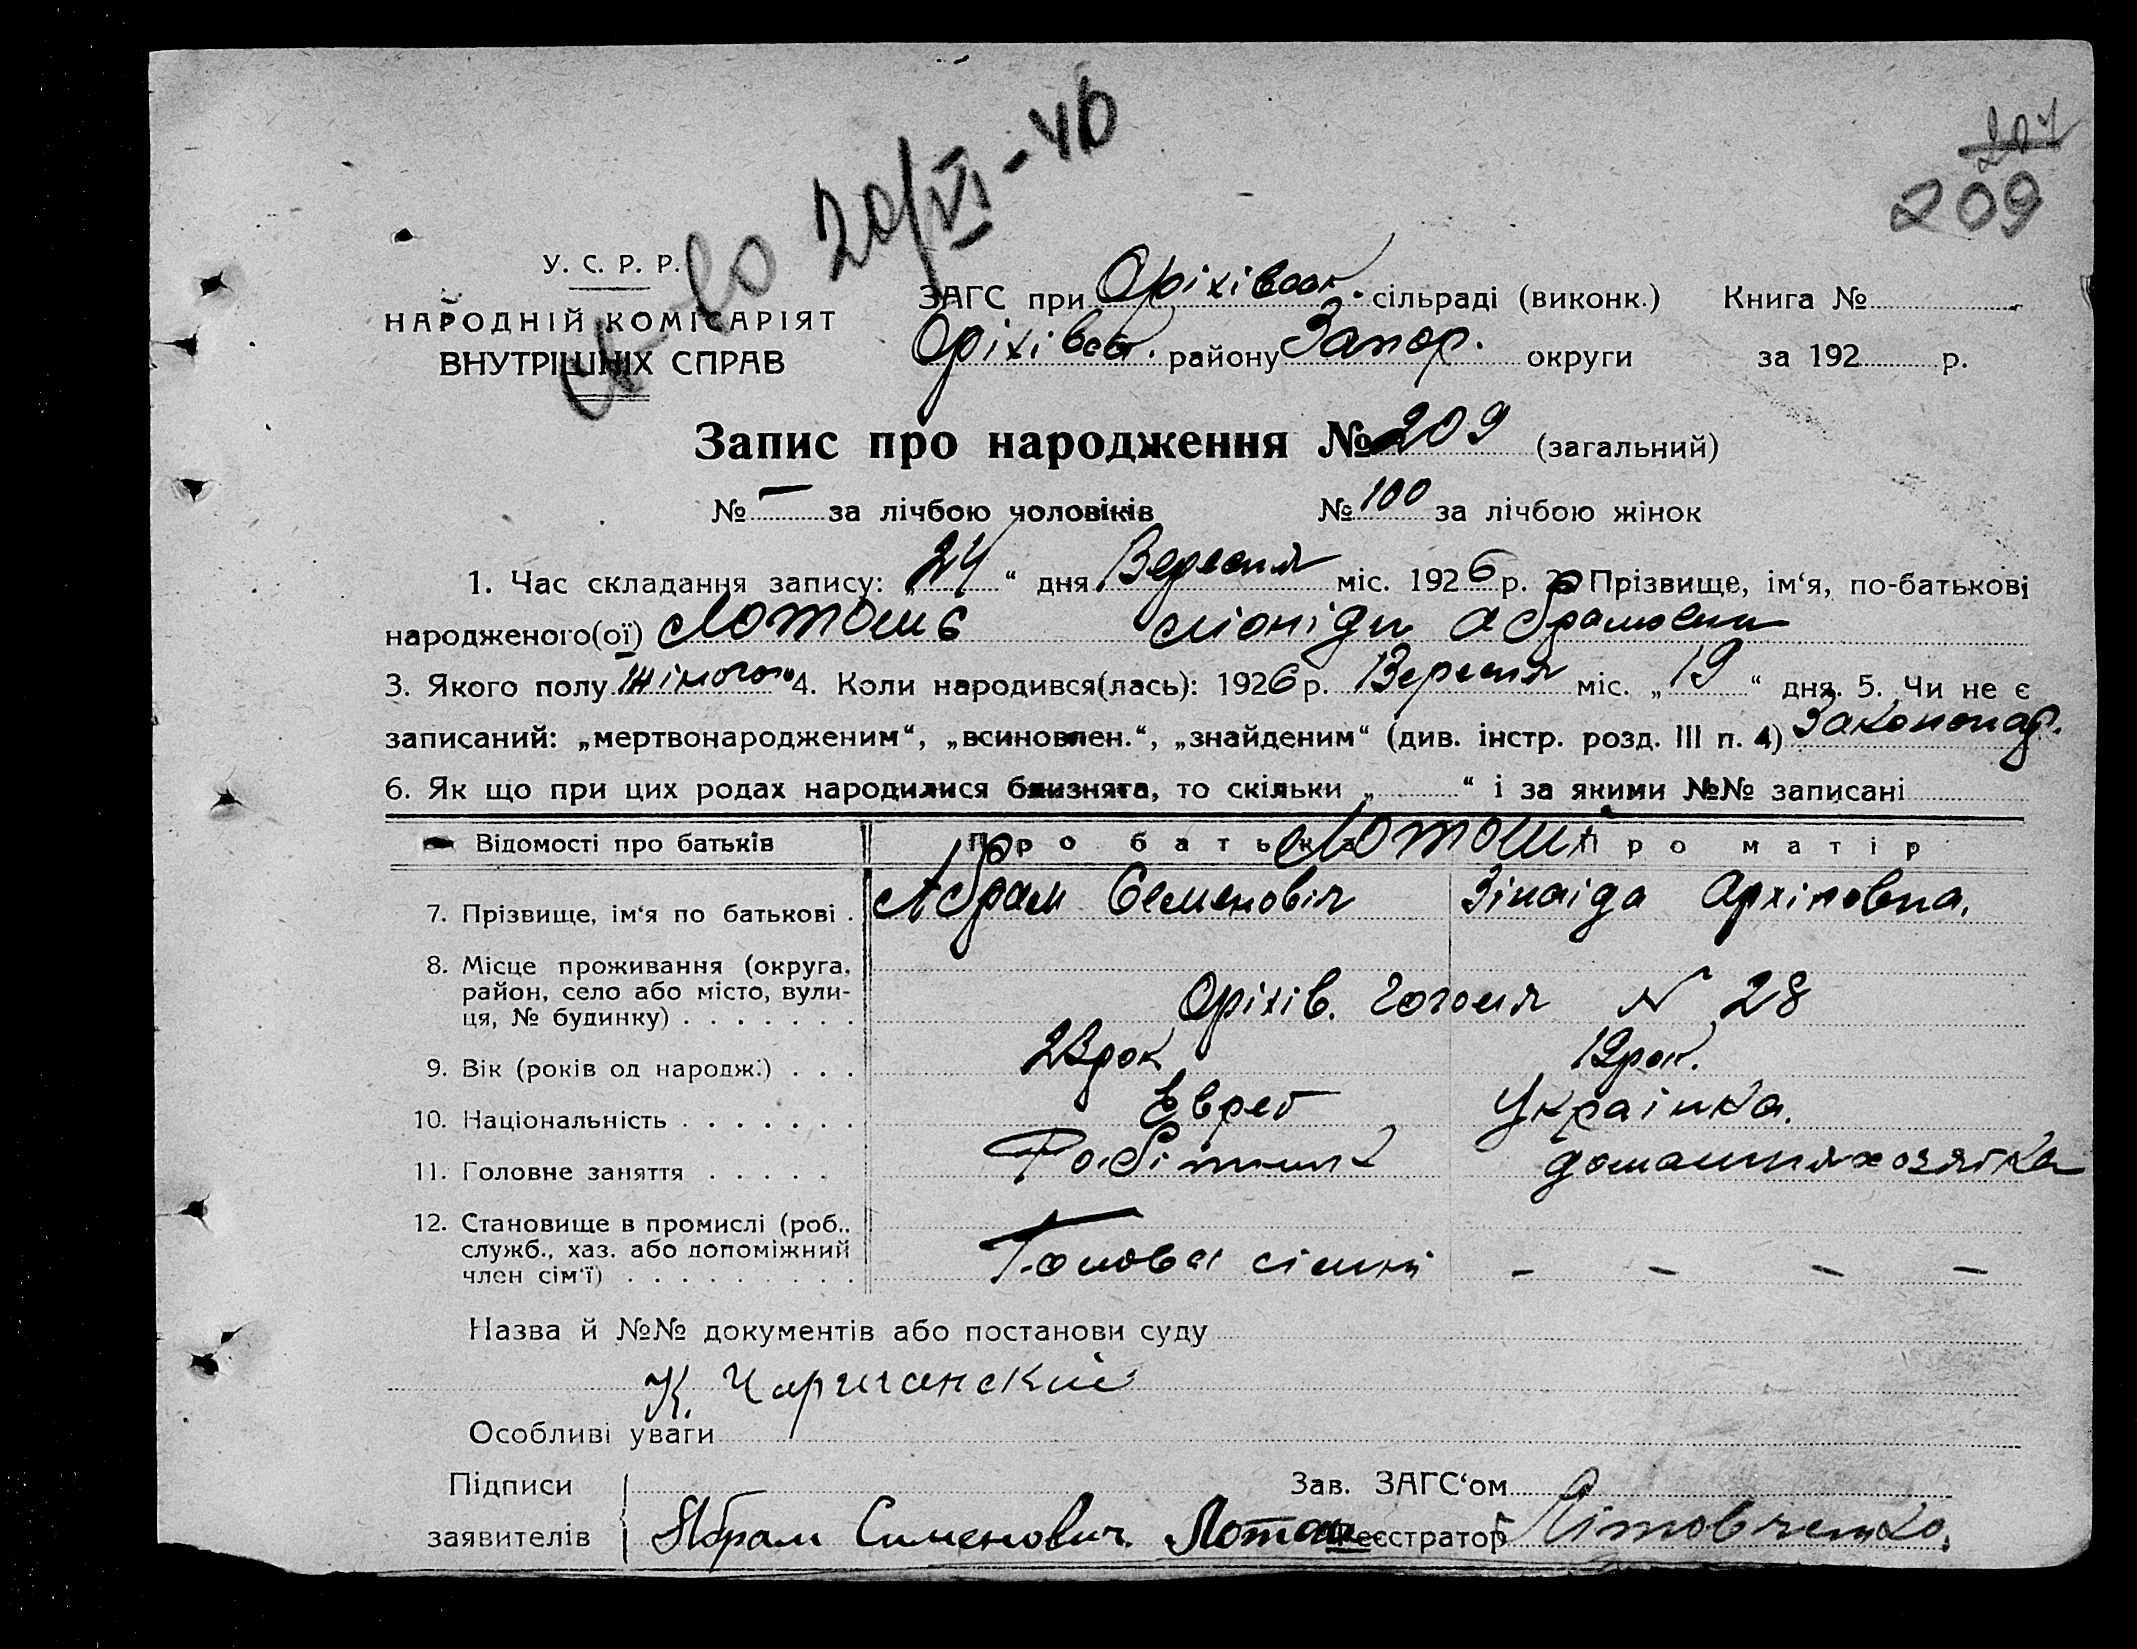 20/VI-46
207
209
У. С. Р. Р.
НАРОДНІЙ КОМІСАРІЯТ
ВНУТРІШНІХ СПРАВ
ЗАГС при Оріхівськ. сільраді (виконк.) Книга №
Оріхівськ. району Запор. округи за 192 р.
Запис про народження № 209 (загальний)
№ — за лічбою чоловіків № 100 за лічбою жінок
1. Час складання запису: „24“ дня Вересня міс. 1926 р. 2. Прізвище, ім‘я, по-батькові
народженого(ої) Лотош Абрамовна
3. Якого полу Жіночого 4. Коли народився(лась): 1926 р. Вересня міс. „19“ дня. 5. Чи не є
записаний: „мертвонародженим“, „всиновлен.“, „знайденим“ (див. інстр. розд. III п. 4) Законнонар.
6. Як що при цих родах народилися близнята, то скільки „ “ і за якими №№ записані
Відомості про батьків Про батька Лотош Про матір
7. Прізвище, ім‘я по батькові . Абрам Семенович Зінаіда Архіповна.
8. Місце проживання (округа,
район, село або місто, вули-
ця, № будинку) . . . . . . . Оріхів. Гоголя № 28
9. Вік (років од народж.) . . . 23 рок 19 рок.
10. Національність . . . . . . . Еврей Украінка.
11. Головне заняття . . . . . Робітник домашня хозяйка
12. Становище в промислі (роб.,
служб., хаз. або допоміжний
член сім‘ї) . . . . . . . . . Голова сімьї – – – –
Назва й №№ документів або постанови суду
К.
Особливі уваги
Підписи Зав. ЗАГС‘ом
заявителів Абрам Сименович Лотош Реєстратор Літовченко